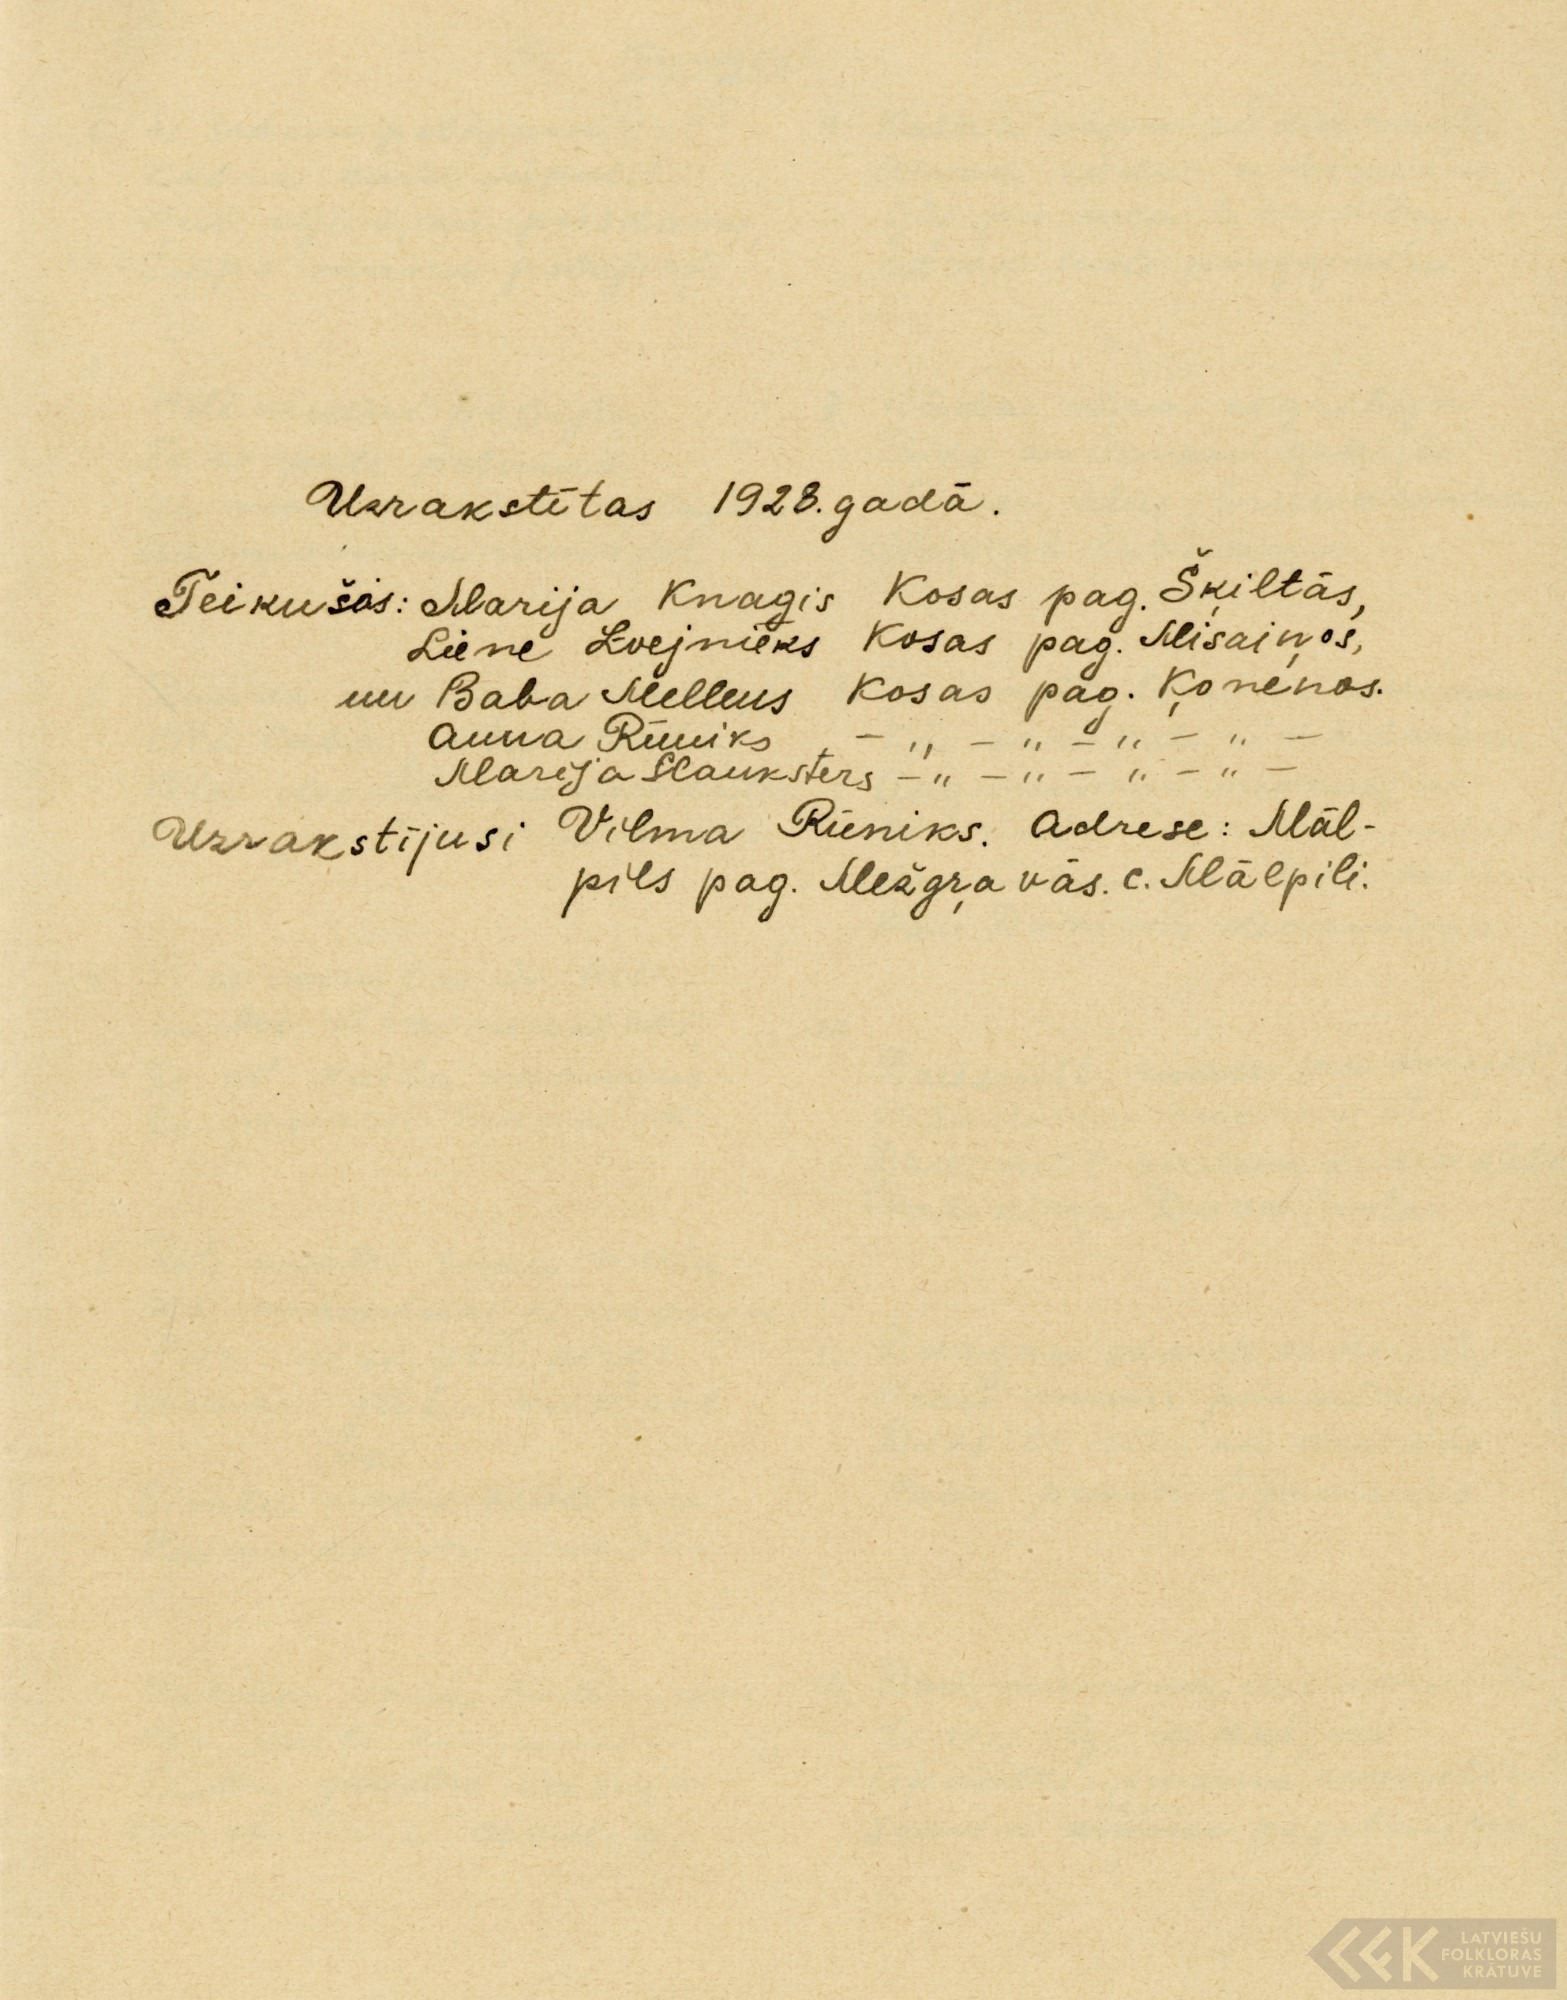 Uzrakstītas 1928. gadā.
Teikušas: Marija Knagis Kosas pag. Šķiltās,
Liene Zvejnieks Kosas pag. Misaiņos,
un Baba Mellens Kosas pag. Ķoņēnos.
Anna Rūniks - " - " - " - " -
Marija Slauksters - " - " - " - " -
Uzrakstījusi Vilma Rūniks. Adrese: Māl-
pils pag. Mežgŗavās. c. Mālpili.
LATVIEŠU
FOLKLORAS
KRĀTUVE